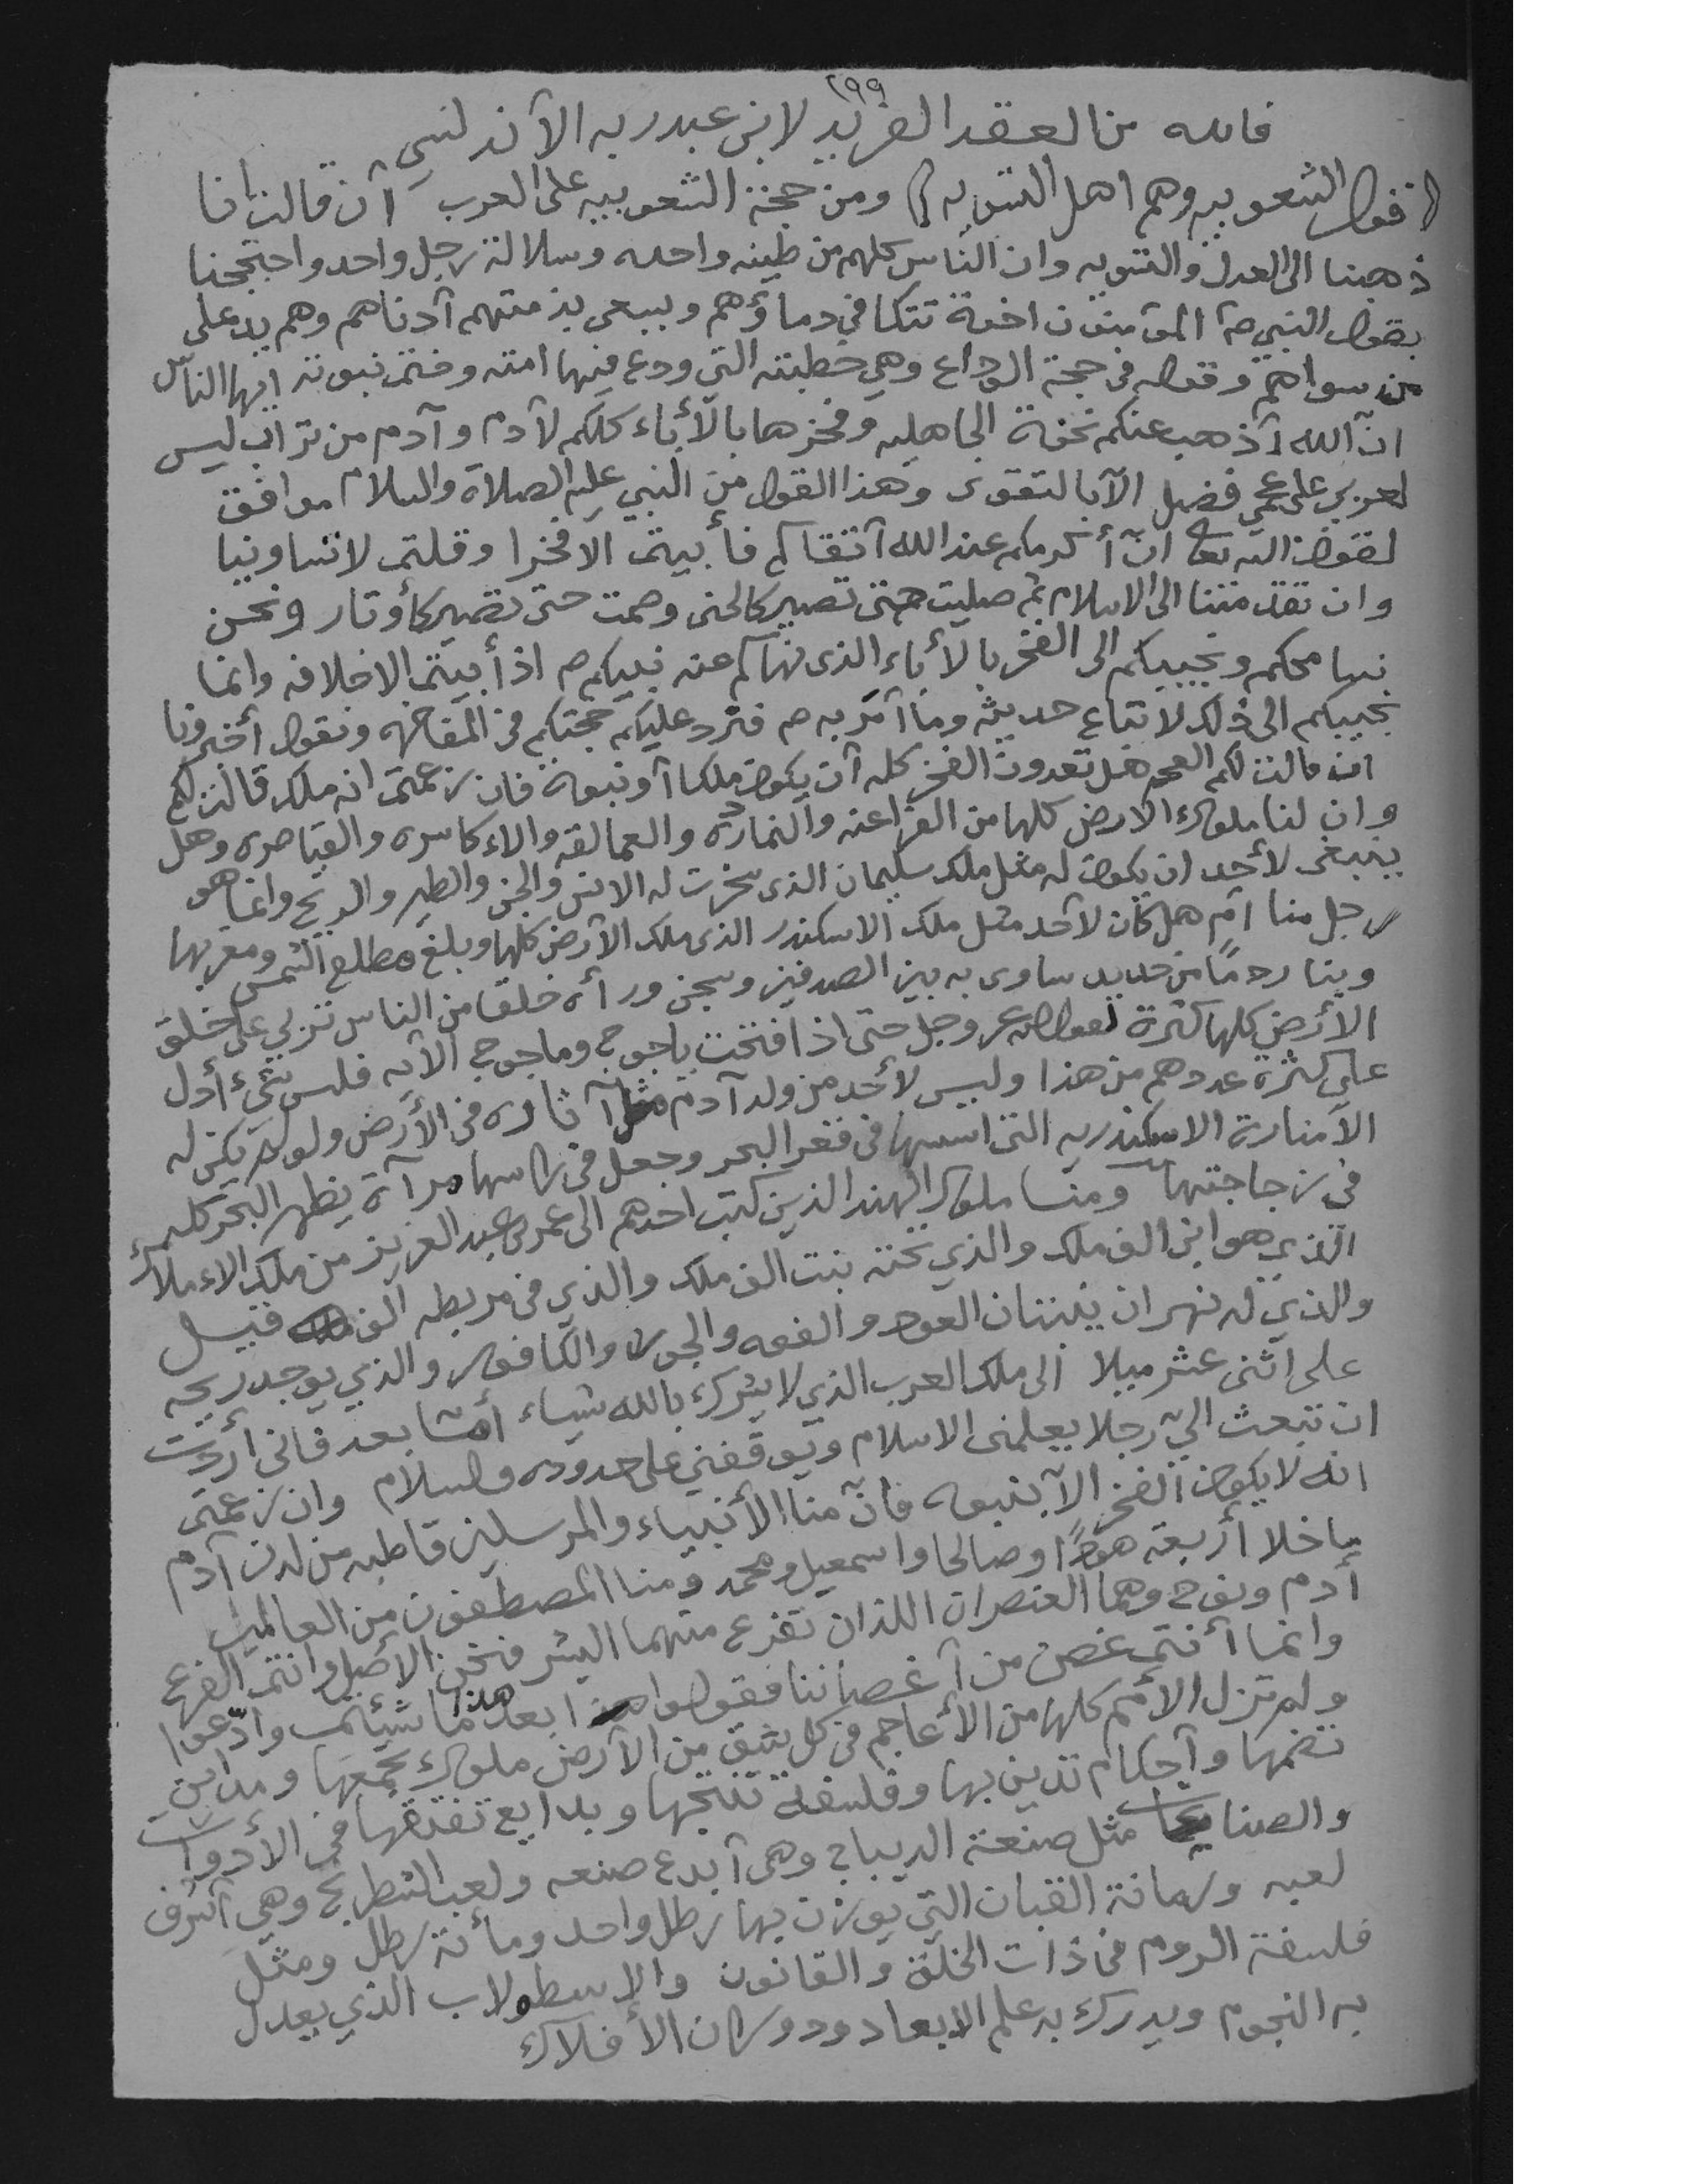 ٢٩٩
فائده من العقد الفريد لابن عبد ربه الآندلسي
(قول الشعوبيه وهم اهل التسويه) ومن حجة الشعوبيه على العرب آن قالت انا
ذهبنا الى العدل والتسويه وان الناس كلهم من طينه واحده وسلالة رجل واحد واحتججنا
بقول النبي ص المؤمنون اخوة تتكا في دماؤهم ويسعى بذمتهم آدناهم وهم يد على
من سواهم وقوله في حجة الوداع وهي خطبته التي ودع فيها امته وختم نبوته ايها الناس
انّ الله آذهب عنكم نخوة الجاهليه وفخرها بالأباء كلكم لآدم وآدم من تراب ليس
لعربي على عجمي فضل الآبالتقوى وهذا القول من النبي عليه الصلاة والسلام موافق
لقول الله تعا انّ أكرمكم عند الله آتقاكم فأبيتم الا فخرا وقلتم لا تساوينا
وان تقدمتنا الى الاسلام ثم صليت حتى تصير كالحنى وصمت حتى تصير كأوتار ونحن
نسامحكم ونجيبكم الى الفخر بالأباء الذى نهاكم عنه نبيكم ص اذ أبيتم الاخلافه وانما
نجيبكم الى ذلك لاتباع حديثه وما آمر به ص فنرد عليكم حجتكم في المفاخره ونقول أخبرونا
ان قالت لكم العجم هل تعدون الفخر كله آن يكون ملكا آو نبوة فان زعمتم انه ملك قالت لكم
وان لنا ملوك الارض كلها من الفراعنه والنمارده والعمالقه والاءكاسره والقياصره وهل
ينبغى لأحد ان يكون له مثل ملك سليمان الذى سخرت له الانس والجن والطير والريح وانما هو
رجل منا ام هل كان لآحد مثل ملك الاسكندر الذى ملك الآرض كلها وبلغ مطلع الشمس ومغربها
وبنا ردمًا من حديد ساوى به بين الصدفين وسجن ورأه خلقا من الناس تربي على خلق
الأرض كلها كثرة لقول الله عز وجل حتى اذا فتحت ياجوج وماجوج الآيه فليس شيئ أدل
على كثرة عددهم من هذا وليس لأحد من ولد آدم مثل آثاره في الأرض ولو لم يكن له
الآمنارة الاسكندريه التى اسسها في قعر البحر وجعل في راسها مرآة يظهر البحر كله
في زجاجتها ومنا ملوك الهند الذين كتب احدهم الى عمر بن عبد العزيز من ملك الاءملاك
الذي هو ابن الف ملك والذي تحته بنت الف ملك والذي في مربطه الف فيل
والذي له نهران ينبتان العود والفوه والجوز والكافور والذي يوجد ريحه
على اثنى عشر ميلا الى ملك العرب الذي لا يشرك بالله شياء أمّا بعد فانى أردت
ان تبعث اليّ رجلا يعلمنى الاسلام ويوقفني على حدوده والسلام وان زعمتم
انه لا يكون الفخر الآ بنبوه فانّ منا الأنبياء والمرسلين قاطبه من لدن آدم
ما خلا أربعة هودًا وصالحا واسمعيل ومحمد ومنا المصطفون من العالمين
أدم ونوح وهما العنصران اللذان تفرع منهما البشر فنحن الأصل وانتم الفرع
وانما أنتم غصن من آغصاننا فقولوا بعد هذا ما شئتم وادّعوا
ولم تزل الأمم كلها من الأعاجم في كل شق من الآرض ملوك تجمعها ومداين
تضمها وآحكام تدين بها وفلسفة تنتجها وبدايع تفتقها في الأدوات
والصناعات مثل صنعة الديباج وهى آبدع صنعه ولعب الشطرنج وهي آشرف
لعبه ورمانة القبان التي يوزن بها رطل واحد ومأئة رطل ومثل
فلسفة الروم في ذات الخلق والقانون والاسطولاب الذي يعدل
به النجوم ويدرك به علم الابعاد ودوران الأفلاك